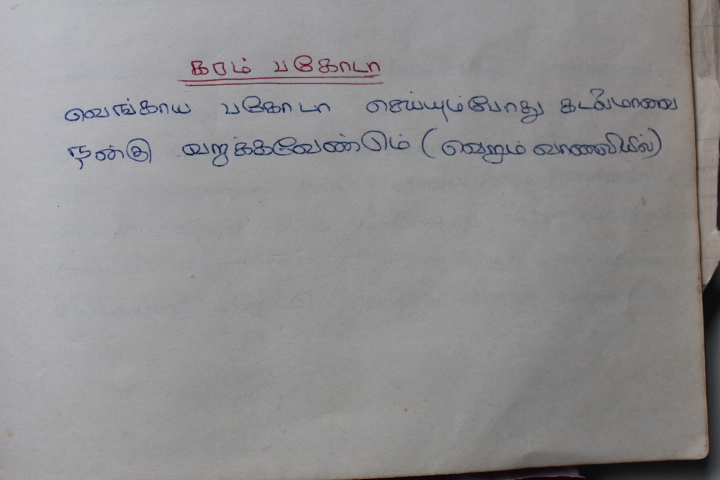 கரம் பகோடா
வெங்காய பகோடா செய்யும்போது கடலைமாவை
நன்கு வறுக்கவேண்டும் (வெறும் வாணலியில்)